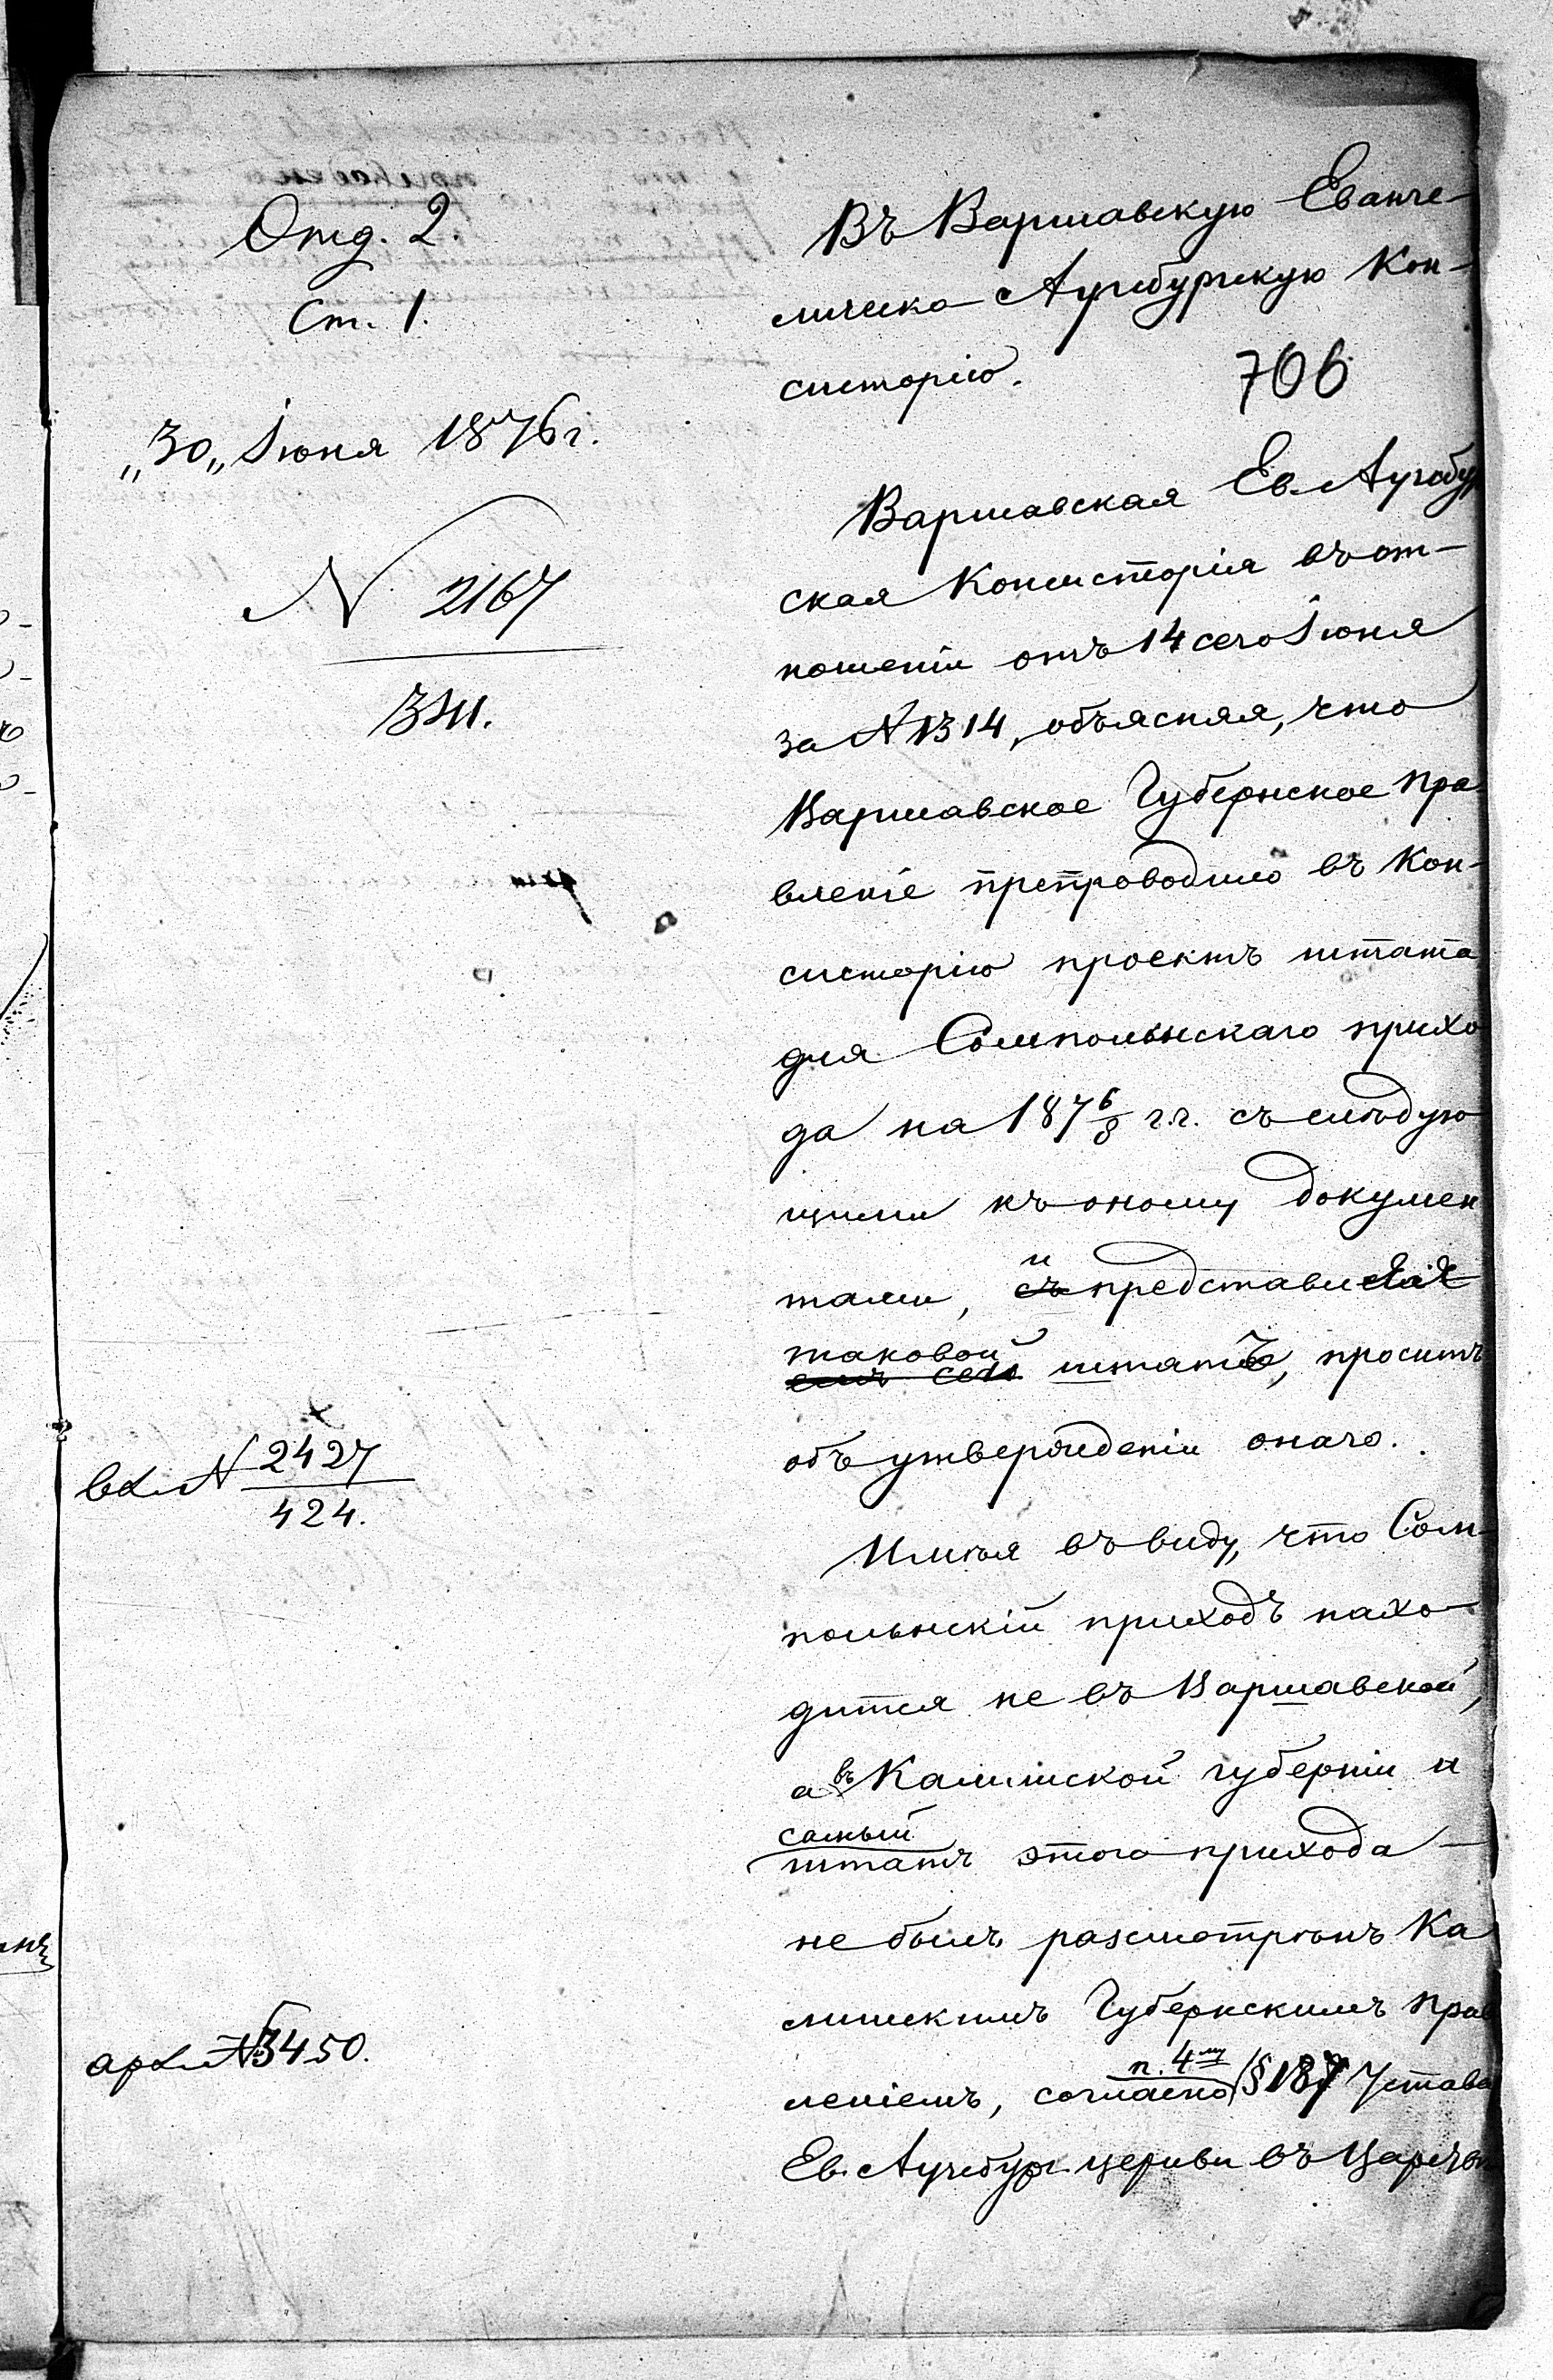 Отд. 2.
Ст. 1.
„30„ Іюня 1876 г.
N 2167
344.
вх. N 2427
424.
арх. N 3450.
Въ Варшавскую Еванге-
лическо-Аугсбургскую Кон-
систорію.
706
Варшавская Ев.-Аугсбур
ская Консисторія въ от-
ношеніи отъ 14 сего Іюня
за N 1314, объясняя, что
Варшавское Губернское Пра-
вленіе препроводило въ Кон-
систорію проектъ штата
для Сомпольнскаго прихо
да на 187 6/8 г.г. съ слѣдую
щими къ оному докумен
тами, и съ представляя
таковой штатъ, проситъ
объ утвержденіи онаго.
Имѣя въ виду, что Сом-
польнскій приходъ нахо-
дится не въ Варшавской,
а въ Калишской губерніи и
самый
штатъ этого прихода
не былъ разсмотрѣнъ Ка
лишскимъ Губернскимъ Прав
леніемъ, согласно п. 4му § 187 Устава
Ев. Аугсбург. церкви въ Царств